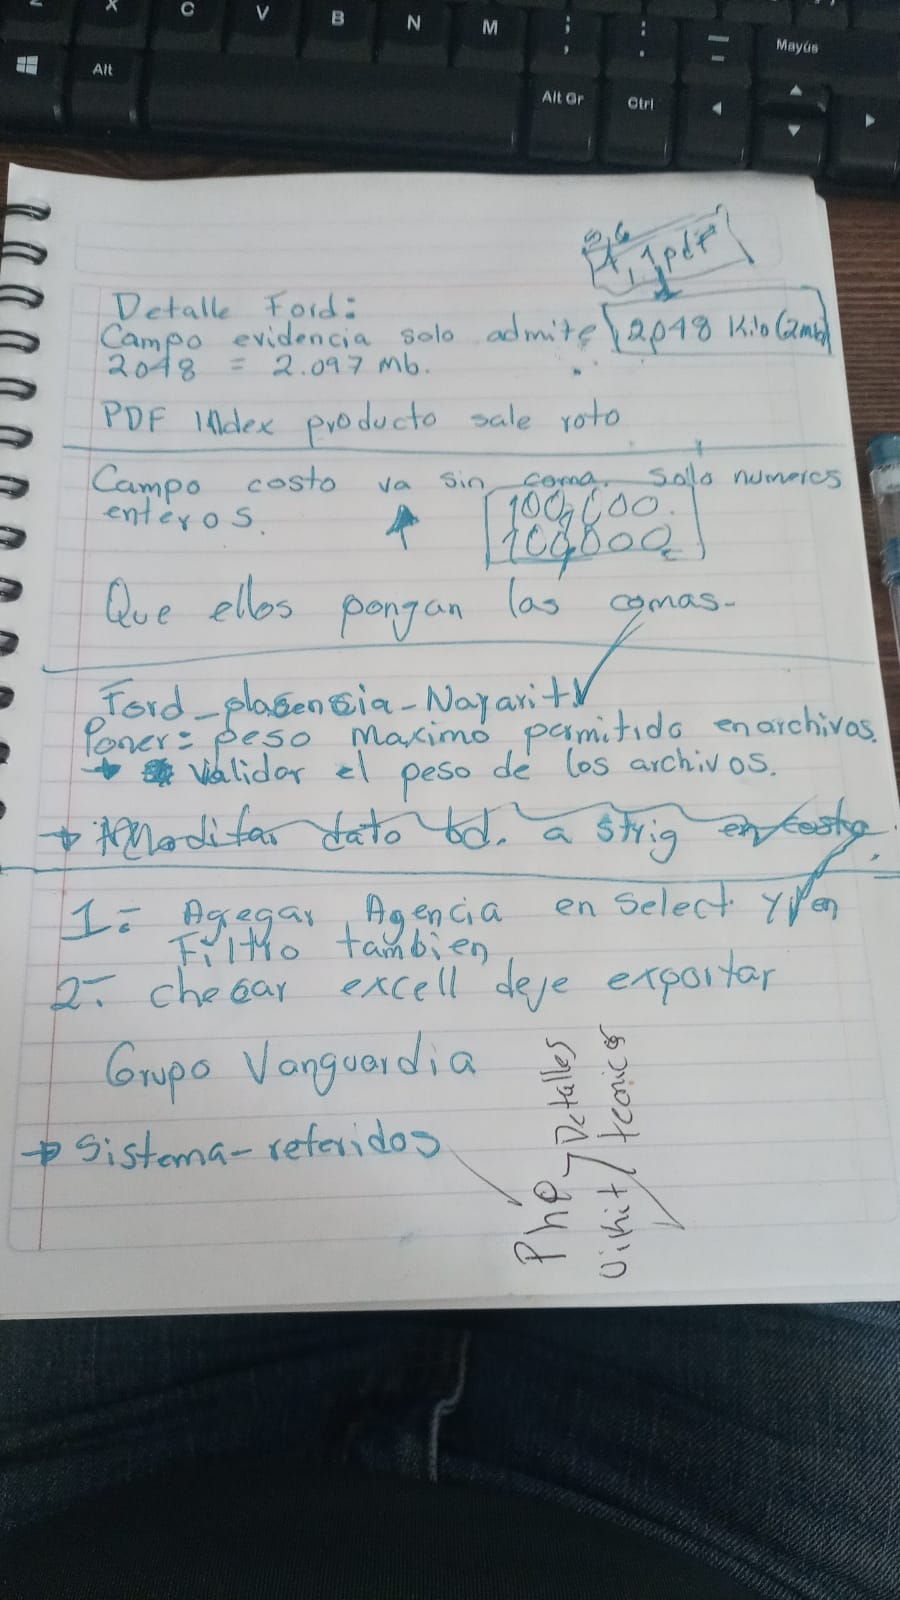 X C V B N M ; , : . Mayús
Alt Alt Gr Ctrl
1pdf
Detalle Ford:
Campo evidencia solo admite 2,048 Kilo (2mb)
2048 = 2.097 mb.
PDF Index producto sale roto
Campo costo va sin coma. Solo numeros
enteros.
100,000.
100,000
Que ellos pongan las comas-
Ford_plasencia-Nayarit
Poner= peso maximo permitido en archivos.
→ validar el peso de los archivos.
→ Modifar dato bd. a strig en costo
1= Agegar Agencia en Select y en
Filtro tambien
2-. checar excell deje exportar
Grupo Vanguardia
→ Sistema-referidos
Php
Detalles
tecnicos